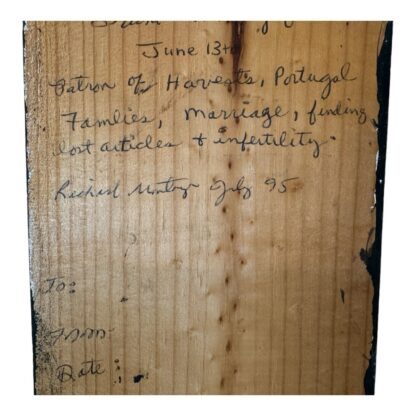 June 13th
Patron of Harvests, Portugal
Famlies, marriage, finding
lost articles + infertility.
Richard July 95
To:
From
Date: